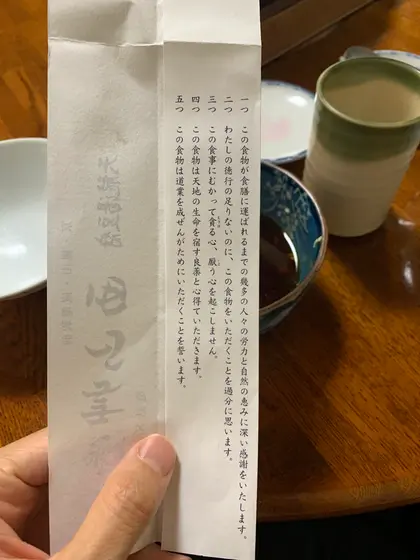 一つ　この食物が食膳に運ばれるまでの幾多の人々の労力と自然の恵みに深い感謝をいたします。
二つ　わたしの徳行の足りないのに、この食物をいただくことを過分に思います。
三つ　この食事にむかって貪る心、厭う心を起こしません。
四つ　この食物は天地の生命を宿す良薬と心得ていただきます。
五つ　この食物は道業を成ぜんがためにいただくことを誓います。